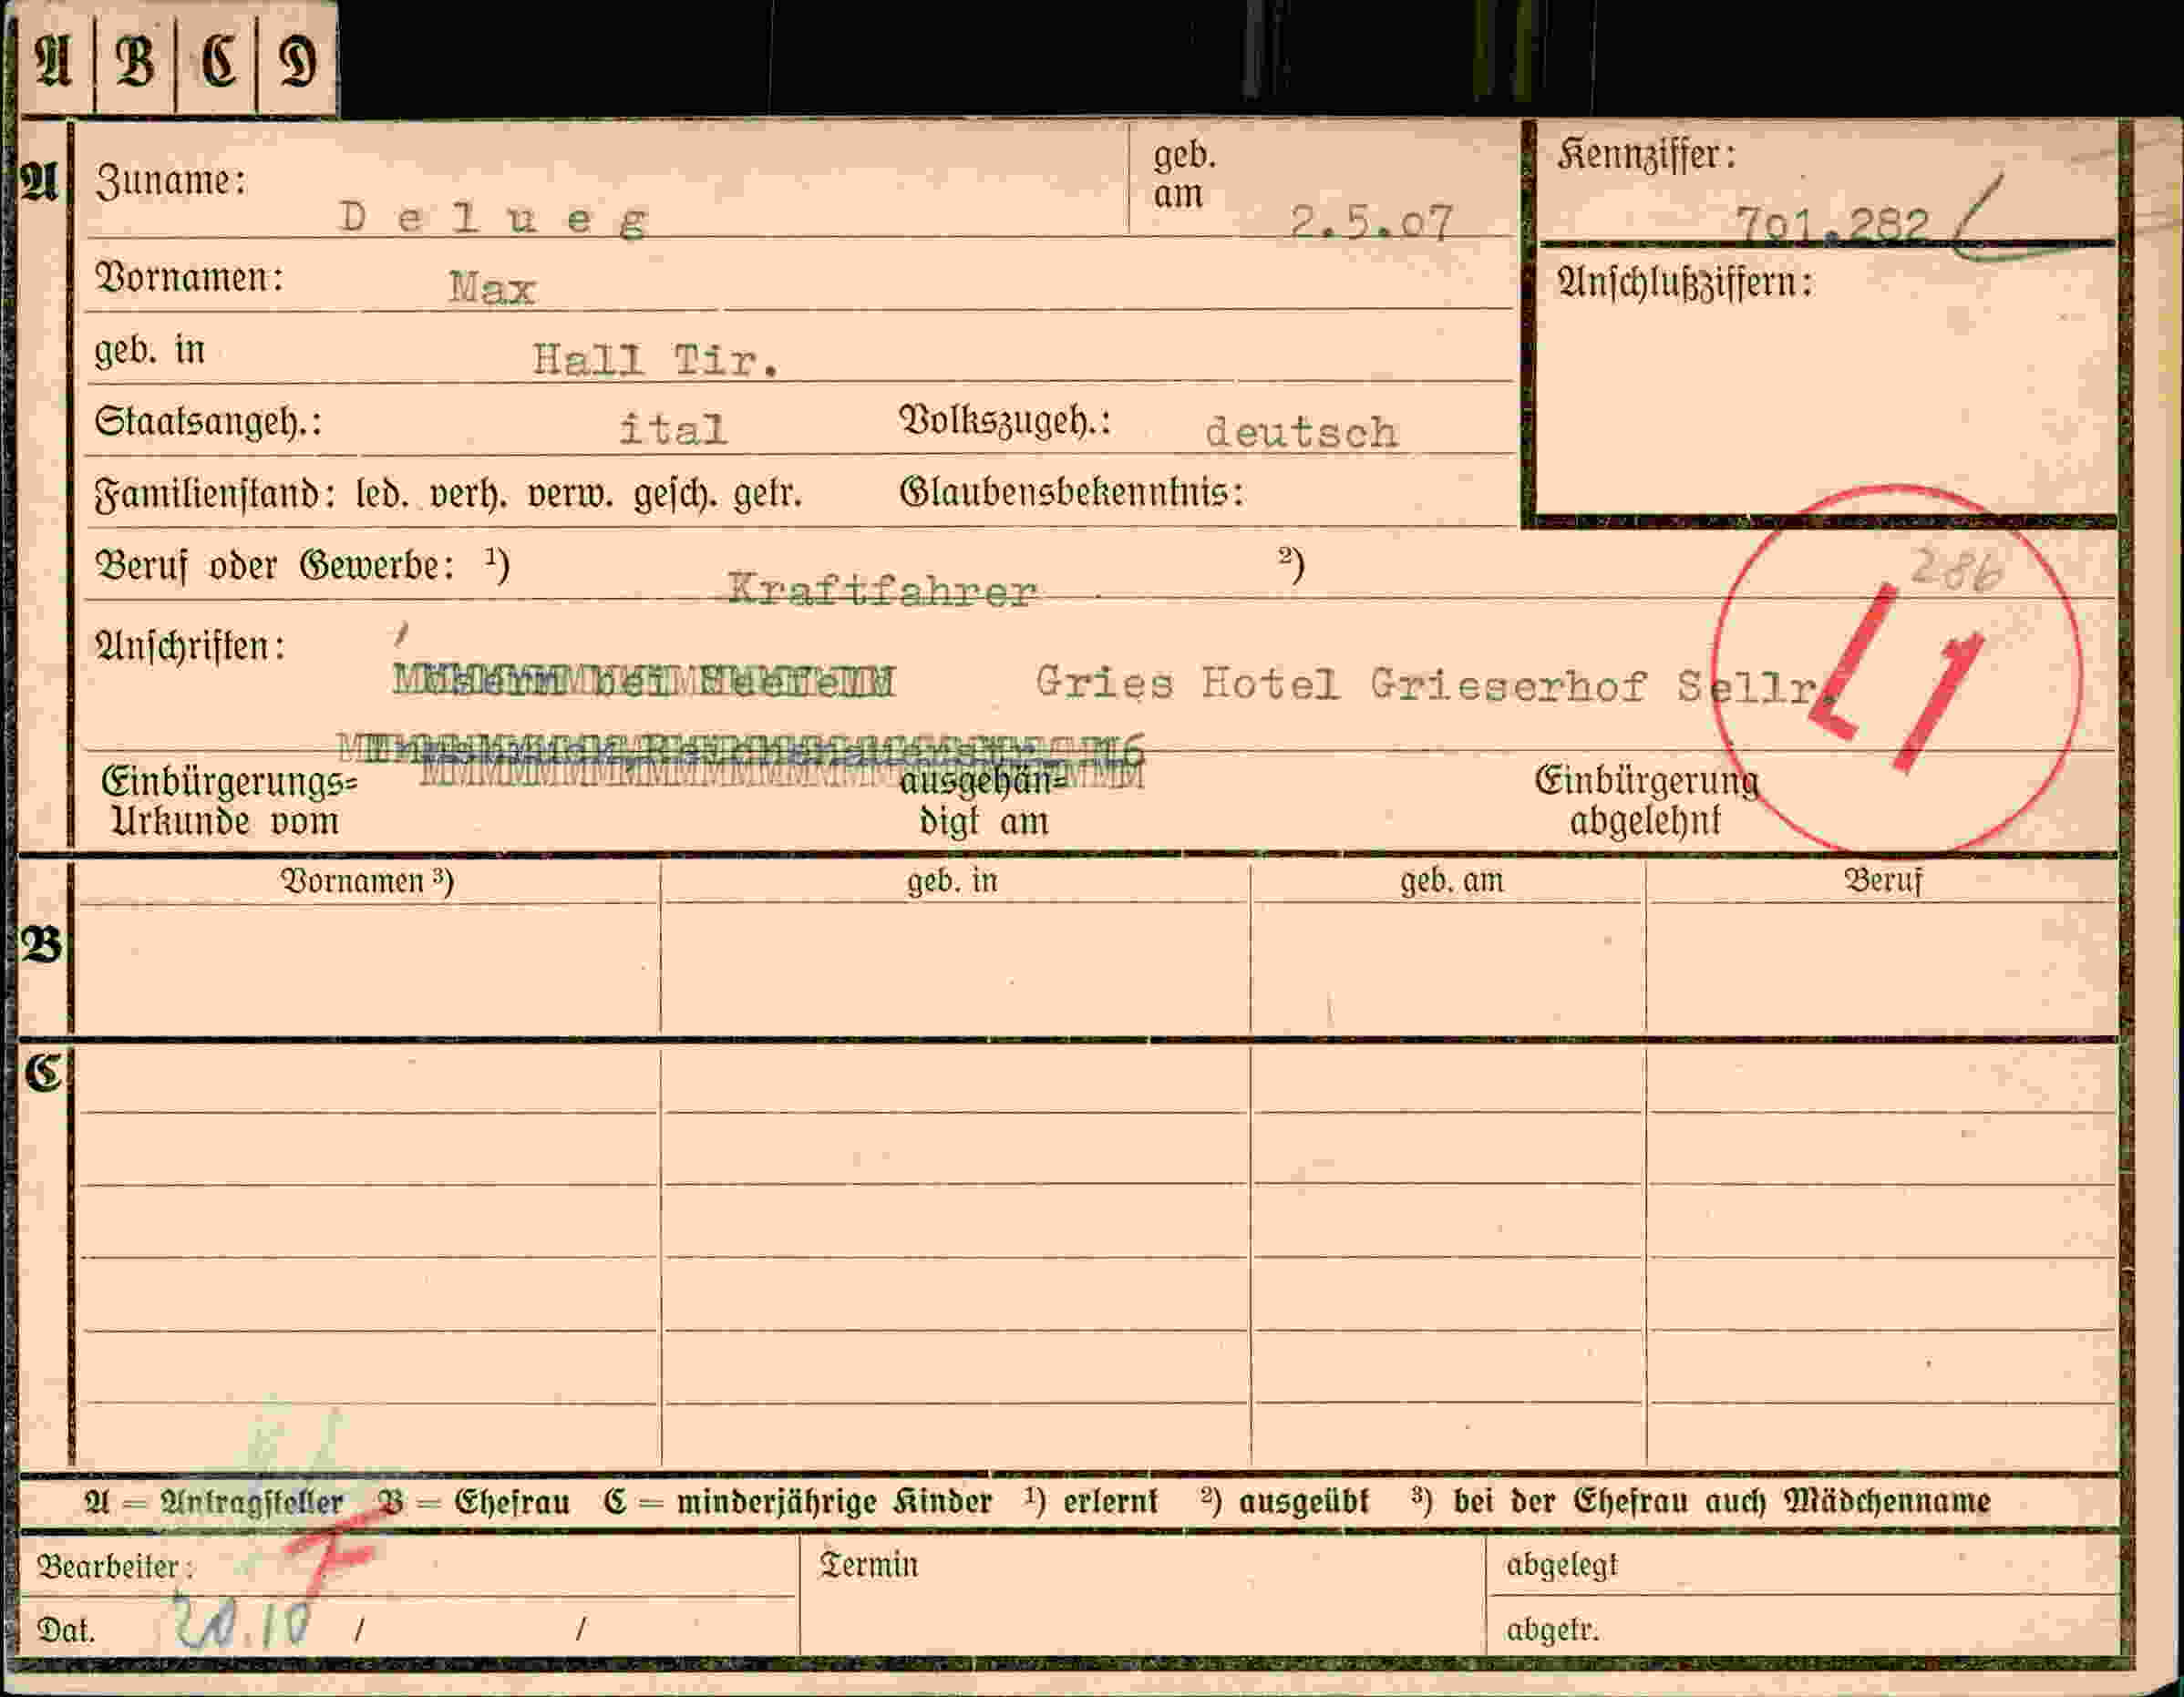 A B C D
A Zuname: Delueg geb. am 2.5.07 Kennziffer: 701.282
Vornamen: Max Anschlußziffern:
geb. in Hall Tir.
Staatsangeh.: ital Volkszugeh.: deutsch
Familienstand: led. verh. verw. gesch. getr. Glaubensbekenntnis:
Beruf oder Gewerbe: ¹) Kraftfahrer ²) 286
L1
Anschriften: Mösern bei Seefeld Gries Hotel Grieserhof Sellr.
Einbürgerungs=
Urkunde vom
ausgehän=
digt am
Einbürgerung
abgelehnt
B Vornamen ³) geb. in geb. am Beruf
C
A = Antragsteller B = Ehefrau C = minderjährige Kinder ¹) erlernt ²) ausgeübt ³) bei der Ehefrau auch Mädchenname
Bearbeiter: Termin abgelegt
Dat. 20.10 / / abgetr.